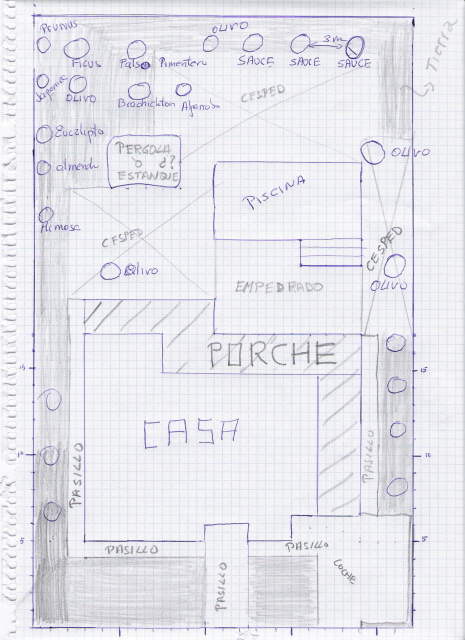 Prunus
OLIVO
3m
Ficus
Falso Pimentero
SAUCE
SAUCE
SAUCE
Tierra
Japonica
OLIVO
Brachichiton
CESPED
Eucalipto
PERGOLA
O ¿?
ESTANQUE
OLIVO
almendr
PISCINA
Mimosa
CESPED
CESPED
Olivo
EMPEDRADO
OLIVO
PORCHE
15
15
CASA
PASILLO
PASILLO
10
10
5
5
PASILLO
PASILLO
PASILLO
COCHE